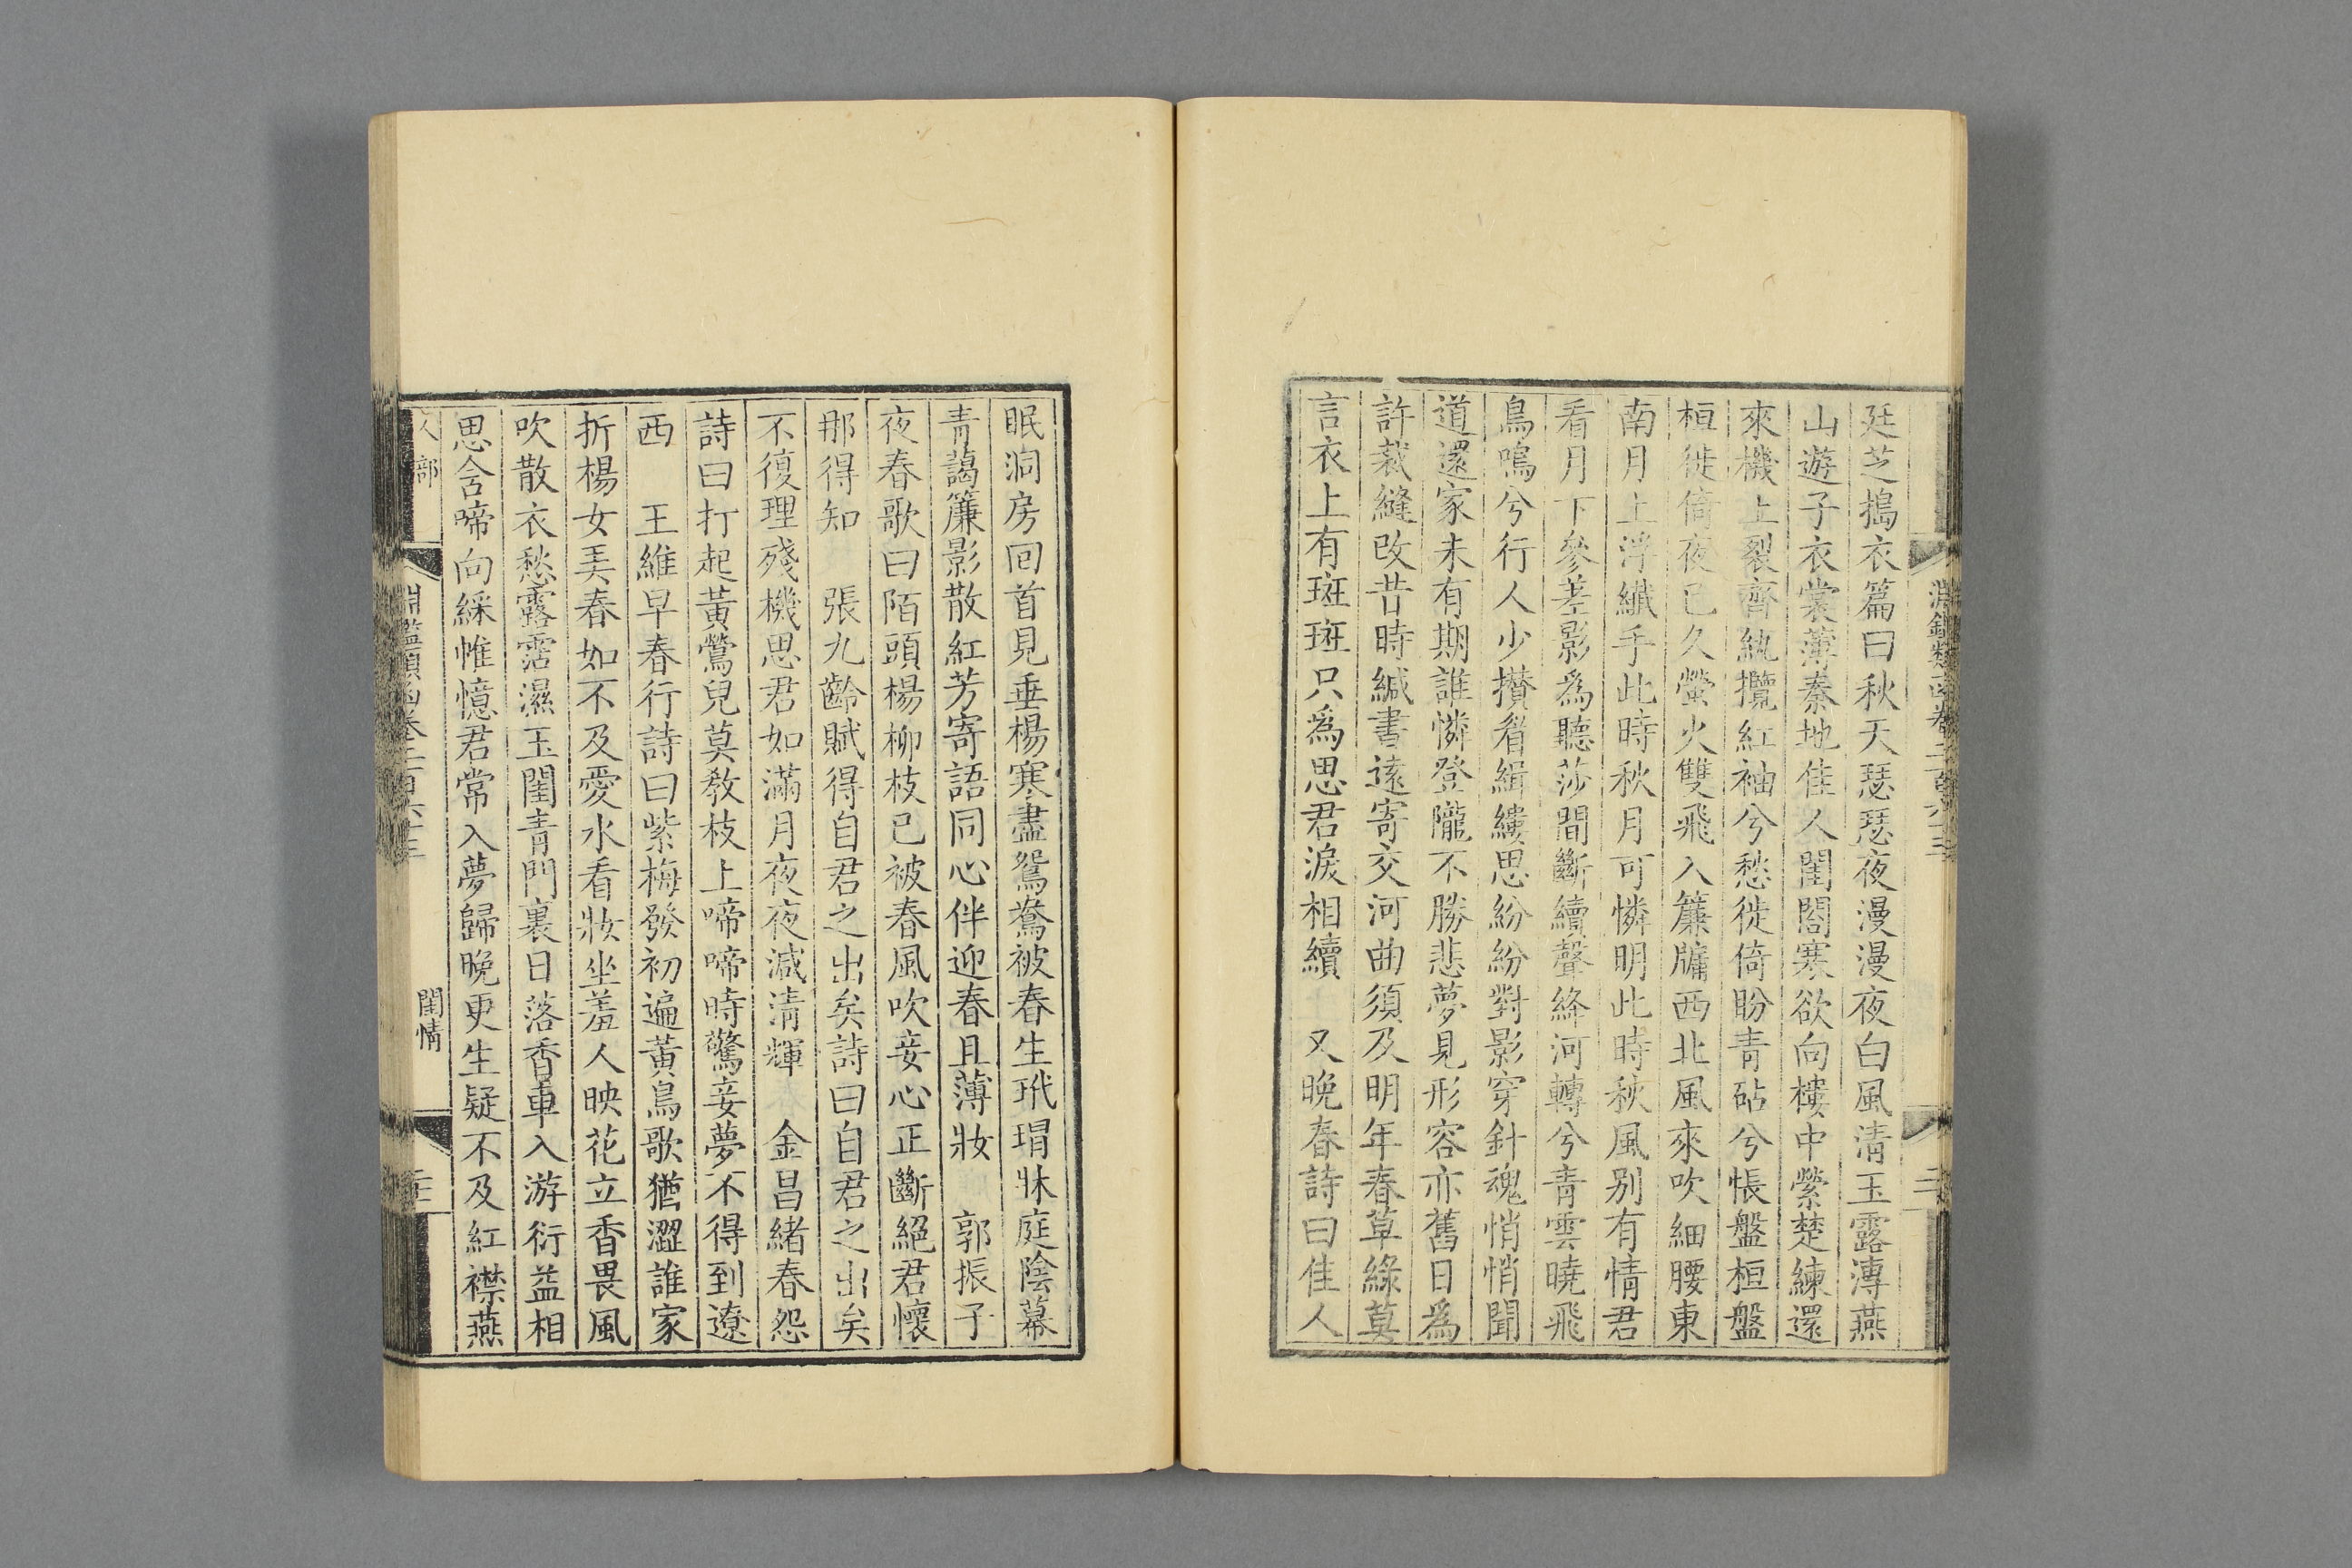 廷芝搗衣篇曰秋天瑟瑟夜漫漫夜白風淸玉露漙燕
山遊子衣裳薄秦地佳人閨閤寒欲向樓中縈楚練還
來機上裂齊紈攬紅袖兮愁徙倚盼青砧兮悵盤桓盤
桓徙倚夜已久螢火雙飛入簾牖西北風來吹細腰東
南月上浮纎手此時秋月可憐明此時秋風别有情君
看月下參差影爲聽莎間斷續聲絳河轉兮青雲曉飛
鳥鳴兮行人少攅眉緝縷思紛紛對影穿針魂悄悄聞
道還家未有期誰憐登隴不勝悲夢見形容亦舊日爲
許裁縫改昔時緘書遠寄交河曲須及明年春草綠莫
言衣上有斑斑只爲思君淚相續　又晚春詩曰佳人
眠洞房回首見垂楊寒盡鴛鴦被春生玳瑁牀庭陰幕
青藹簾影散紅芳寄語同心伴迎春且薄妝　郭振子
夜春歌曰陌頭楊柳枝已被春風吹妾心正斷絕君懷
那得知　張九齡賦得自君之出矣詩曰自君之出矣
不復理殘機思君如滿月夜夜減淸輝　金昌緒春怨
詩曰打起黃鶯兒莫敎枝上啼啼時驚妾夢不得到遼
西　王維早春行詩曰紫梅發初遍黃鳥歌猶澀誰家
折楊女弄春如不及愛水看妝坐羞人映花立香畏風
吹散衣愁露霑濕玉閨青門裏日落香車入游衍益相
思含啼向綵帷憶君常入夢歸晚更生疑不及紅襟燕
人部
淵鑑類函卷二百六十三
閨情